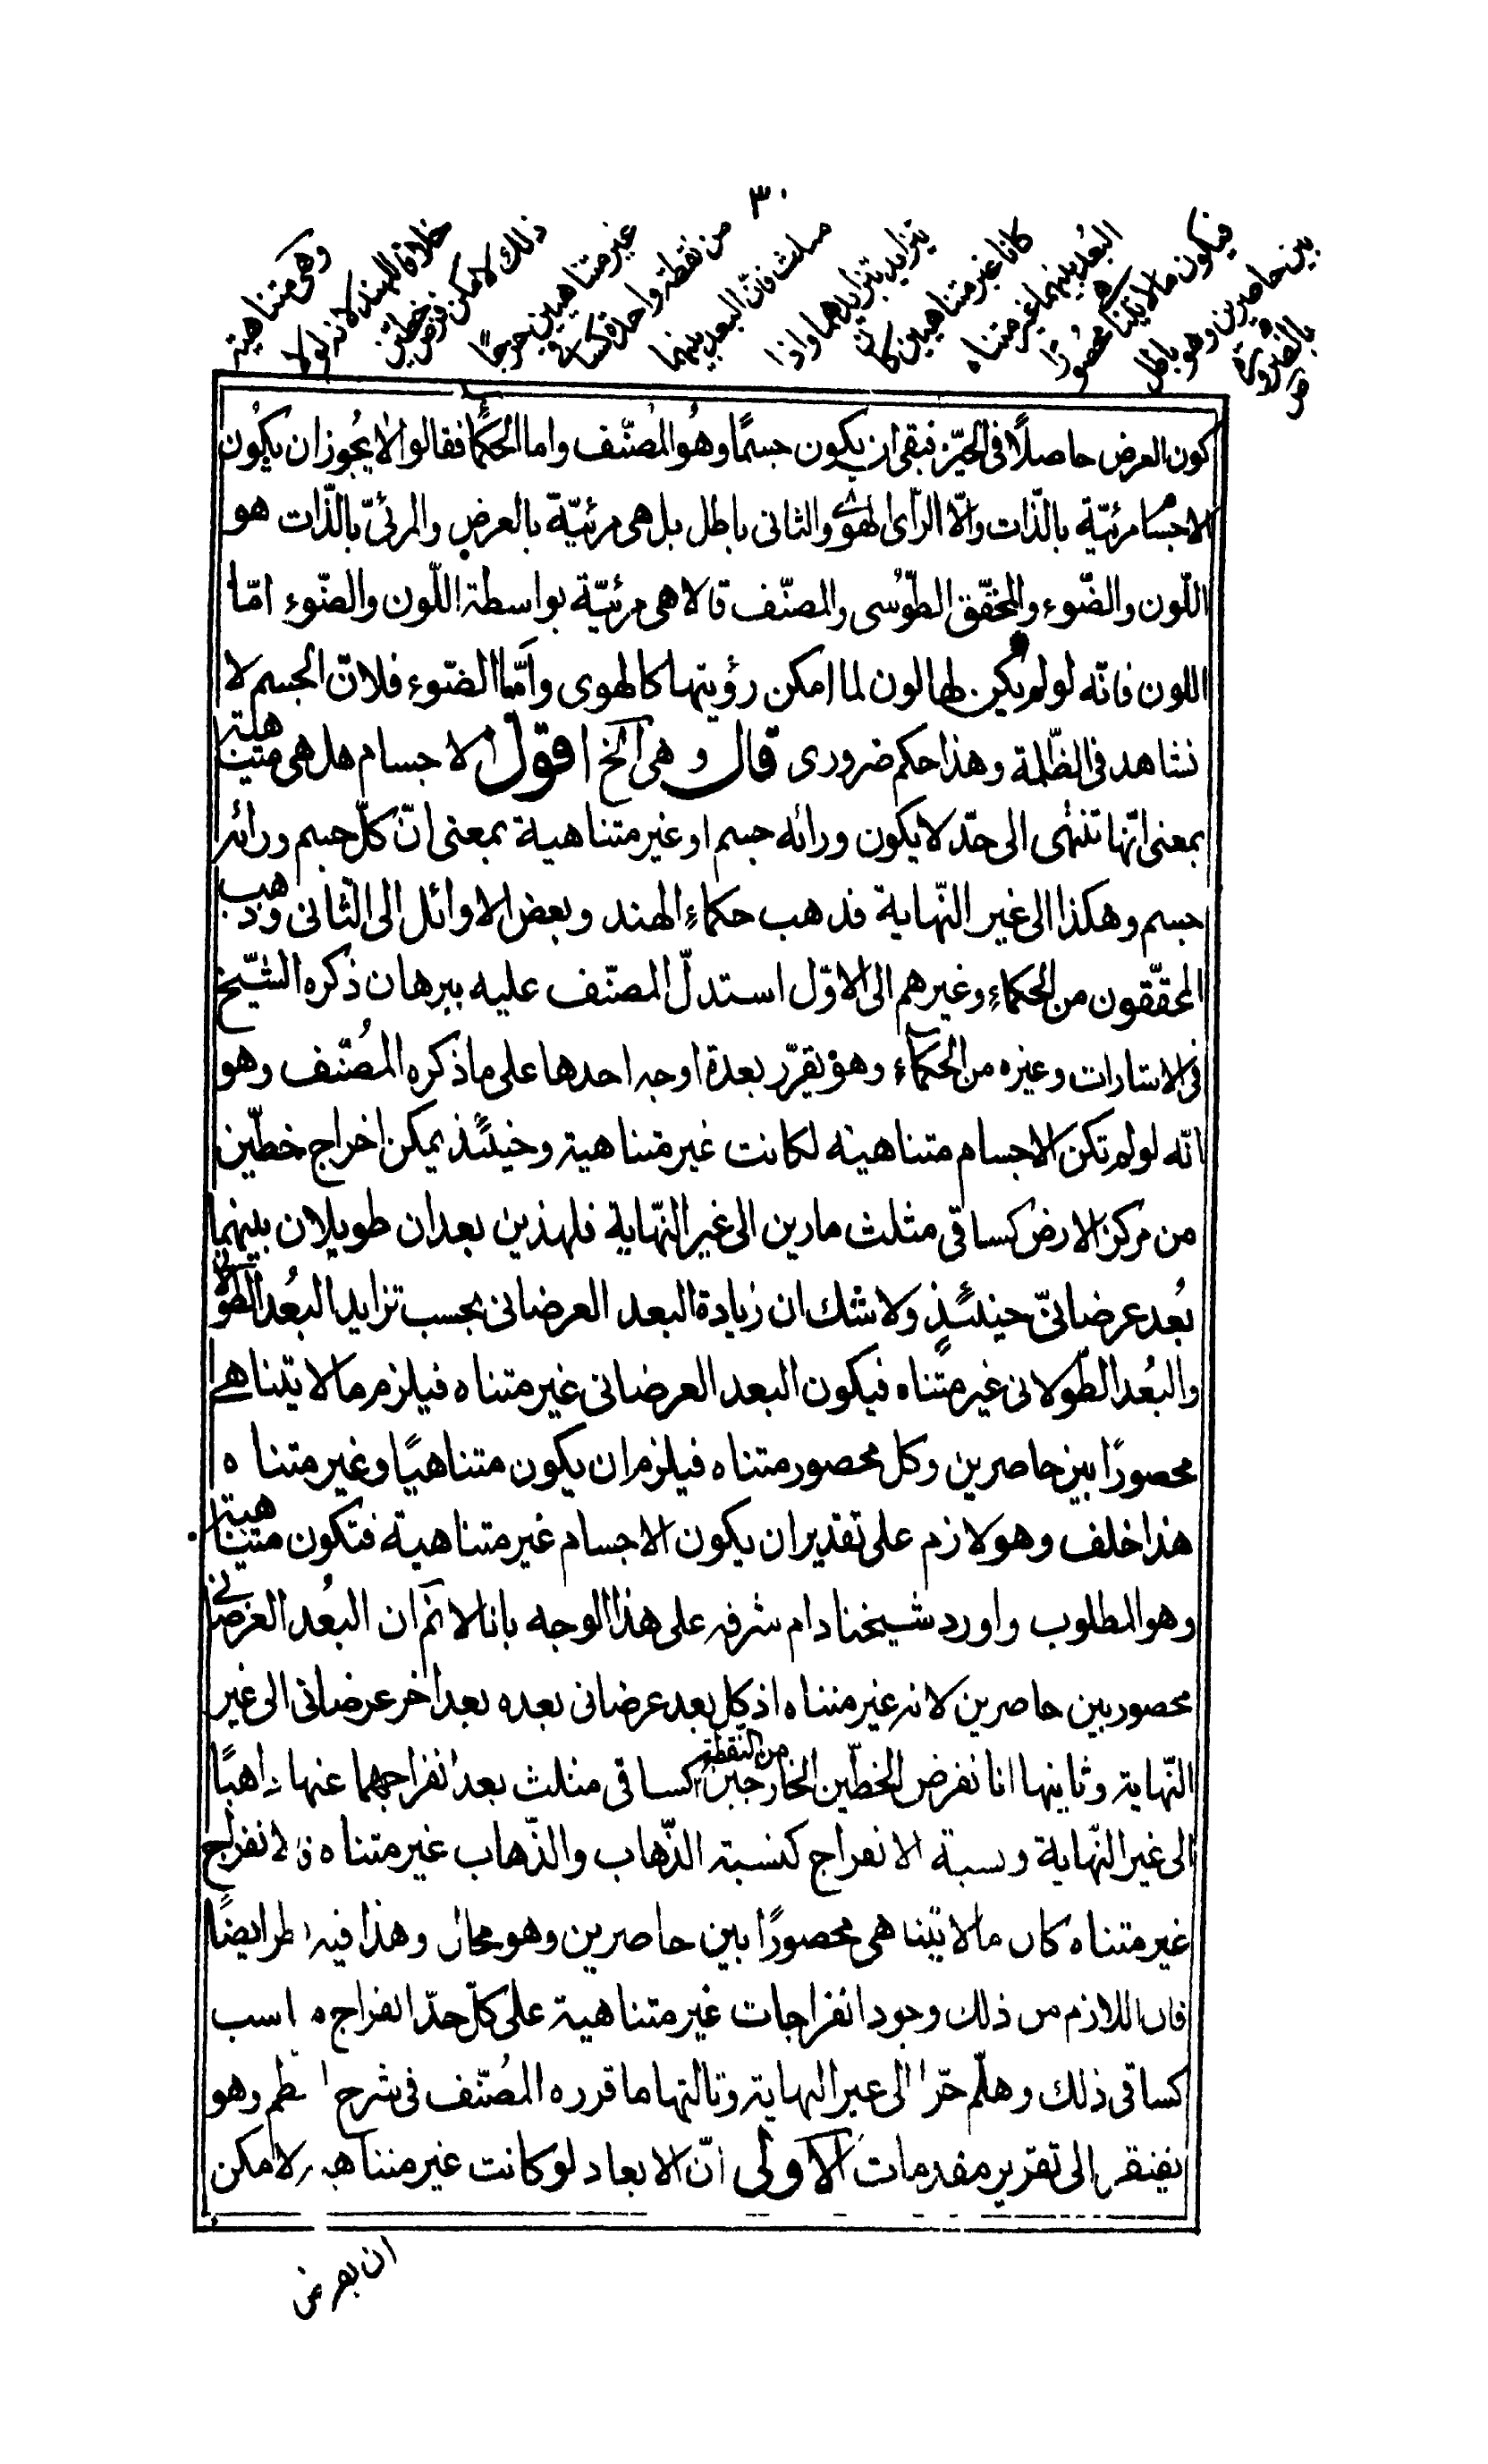 ٣٠
وهى متناهية
خلافا للهند لانه لولا
ذلك لامكن فرض خطين
غير متناهيين خرجا
من نقطة واحدة كساقى
مثلث فان البعد بينهما
يتزايد بتزايدهما واذا
كانا غير متناهيين كان
البعد بينهما غير متناه
فيكون ما لا يتناهى محصورًا
بين حاصرين وهو باطل
بالضرورة
كون العرض حاصلًا فى الحيّز فبقى ان يكون جسمًا وهُو المُصنّف واما الحكما فقالوا لا يجُوز ان يكُون
الاجسام مرئيّة بالذّات والّا الرّأى الهوى والثانى باطل بل هى مرئيّة بالعرض والمرئىّ بالذّات هو
اللّون والضّوء والمحقّق الطّوُسى والمصنّف قالا هى مرئيّة بواسطة اللّون والضّوء امّا
اللون فانّه لو لم يكن لها لون لما امكن رؤيتها كالهوى وامّا الضّوء فلانّ الجسم لا
نشاهد فى الظّلمة وهذا حكم ضرورى قال وهى الخ اقول الاجسام هل هى متناهية
بمعنى انّها تنتهى الى حدّ لا يكون ورائه جسم او غير متناهية بمعنى انّ كلّ جسم ورائه
جسم وهكذا الى غير النّهاية فذهب حكماء الهند وبعض الاوائل الى الثّانى وذهب
المحقّقون من الحكماء وغيرهم الى الاوّل استدلّ المصنّف عليه ببرهان ذكره الشّيخ
فى الاشارات وغيره من الحكماء وهو يقرّر بعدة اوجه احدها على ما ذكره المُصنّف وهو
انّه لو لم تكن الاجسام متناهية لكانت غير متناهية وحينئذ يمكن اخراج خطّين
من مركز الارض كساقى مثلث مارين الى غير النّهاية فلهذين بعدان طويلان بينهما
بُعد عرضانىّ حينئذٍ ولا شك ان زيادة البعد العرضانى بحسب تزايد البُعد الطّولانى
والبُعد الطّولانى غير متناه فيكون البعد العرضانى غير متناه فيلزم ما لا يتناهى
محصورًا بين حاصرين وكل محصور متناه فيلزم ان يكون متناهيًا وغير متناه
هذا خلف وهو لازم على تقدير ان يكون الاجسام غير متناهية فتكون متناهية
وهو المطلوب واورد شيخنا دام شرفه على هذا الوجه بانا لا نم ان البُعد العرضانى
محصور بين حاصرين لانه غير متناه اذ كل بعد عرضانى بعده بعد اخر عرضانى الى غير
النّهاية وثانيها انا نفرض الخطّين الخارجين من النقطة كساقى مثلث بعد انفراجهما عنها ذاهبًا
الى غير النّهاية ونسبة الانفراج كنسبة الذّهاب والذّهاب غير متناه فالانفراج
غير متناه كان ما لا يتناهى محصورًا بين حاصرين وهو محال وهذا فيه نظر ايضًا
فان اللازم من ذلك وجود انفراجات غير متناهية على كلّ حدّ انفراج
كساقى ذلك وهلّم جّرا الى غير النهاية وثالثها ما قرره المُصنّف فى شرح النظم وهو
يفتقر الى تقرير مقدمات الاولى انّ الابعاد لو كانت غير متناهية لامكن
ان يفرض